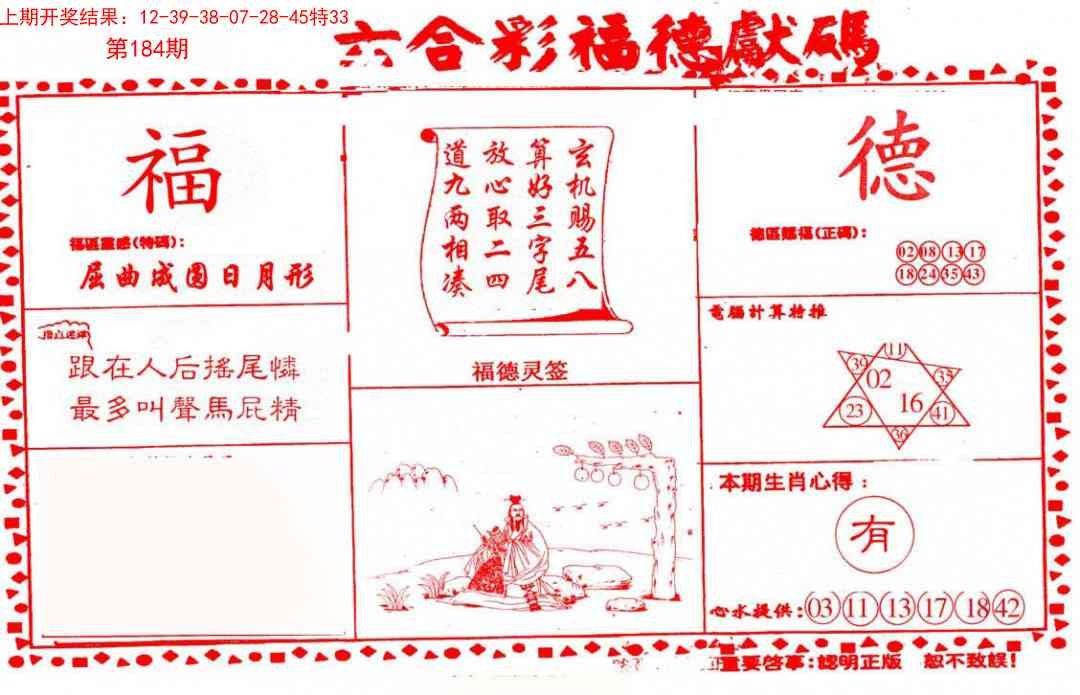 上期开奖结果：12-39-38-07-28-45特33
第184期
六合彩福德獻碼
福
福區靈感(特碼)：
屈曲成圆日月形
跟在人后摇尾憐
最多叫聲馬屁精
玄机赐五八
算好三字尾
放心取二四
道九两相凑
福德灵签
德
德區賜福(正碼)：
02 08 13 17
18 24 35 43
電腦計算特推
11
39
02
35
16
23
41
36
本期生肖心得：
有
心水提供：03 11 13 17 18 42
重要啓事：認明正版 恕不致誤！